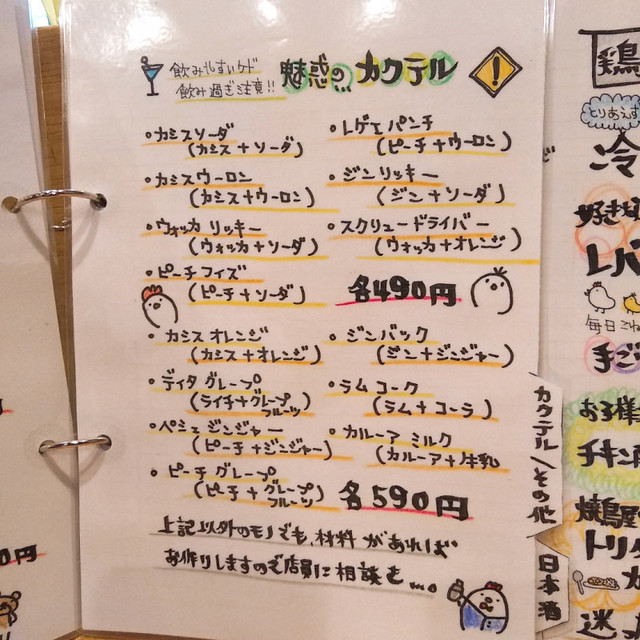 飲みやすいケド
飲み過ぎ注意!!
魅惑の カクテル
•カシスソーダ
(カシス+ソーダ)
•カシスウーロン
(カシス+ウーロン)
•ウォッカ リッキー
(ウォッカ+ソーダ)
•ピーチフィズ
(ピーチ+ソーダ)
•レゲエパンチ
(ピーチ+ウーロン)
•ジンリッキー
(ジン+ソーダ)
•スクリュードライバー
(ウォッカ+オレンジ)
各490円
•カシスオレンジ
(カシス+オレンジ)
•ディタ グレープ
(ライチ+グレープフルーツ)
•ペシェジンジャー
(ピーチ+ジンジャー)
•ピーチグレープ
(ピーチ+グレープフルーツ)
•ジンバック
(ジン+ジンジャー)
•ラムコーク
(ラム+コーラ)
•カルーアミルク
(カルーア+牛乳)
各590円
上記以外のモノでも、材料があれば
お作りしますので店員に相談を...。
カクテル/その他
日本酒
鶏
とりあえず
冷
好き
レバ
毎日
手ご
お子様
チキン
焼鳥屋
トリ
迷
0円